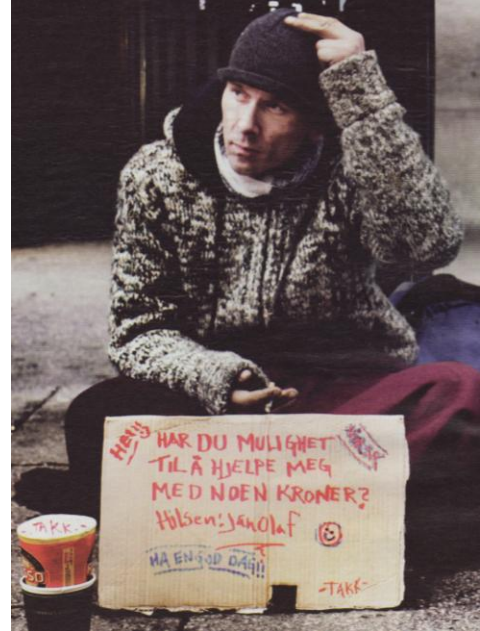 Hei!!
HAR DU MULIGHET
TIL Å HJELPE MEG
MED NOEN KRONER?
Hilsen: Jan Olaf
HA EN GOD DAG!!
-TAKK-
-TAKK-
SO